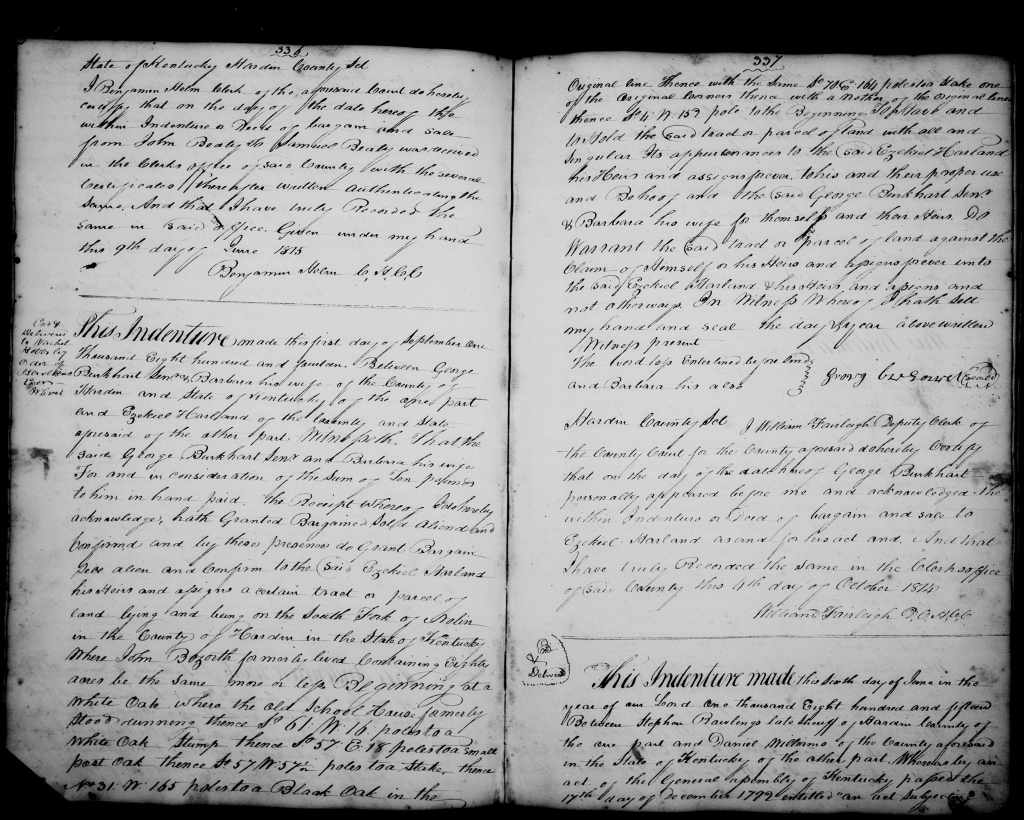 336
State of Kentucky Hardin County Sct
I Benjamin Helm Clerk of the aforesaid Court do hereby
certify that on the day of the date hereof this
within Indenture or Deed of bargain and sale
from John Beaty to Samuel Beaty was received
in the Clerks office of said County with the several
Certificates thereafter written authenticating the
same. And that I have truly Recorded the
same in said office. Given under my hand
this 9th day of June 1815
Benjamin Helm C. H. C. C
Delivered
This Indenture made this first day of September One
Thousand Eight hundred and fourteen. Between George
Burkhart Senr & Barbara his wife of the County of
Hardin and State of Kentucky of the one part
and Ezekiel Harland of the County and State
aforesaid of the other part. Witnesseth. That the
said George Burkhart Senr and Barbara his wife
For and in consideration of the Sum of Ten
to him in hand paid. the Receipt Whereof
acknowledge, hath Granted Bargained Sold Aliend and
Confirmd and by these presences do Grant Bargain
Sell alien and Confirm to the Said Ezekiel Harland
his Heirs and assigns a certain tract or parcel of
land lying and being on the South Fork of Nolin
in the County of Hardin in the State of Kentucky
Where John Bozorth formerly lived Containing Eighty
acres be the same more or less Beginning at a
White Oak where the old School House formerly
Stood running thence So 61 W. 16 poles to a
White Oak Stump thence So 57 E 18 poles to a small
post Oak thence So 57 W 57 poles to a Stake, thence
No 31. W 165 poles to a Black Oak in the
337
Original line Thence with the Same No 70 E 164 poles to a Stake one
of the Original Corners thence with a nother of the Original lines
thence So 4 W 152 pole to the Beginning To Have and
to Hold the Said tract or parcel of land with all and
Singular. Its appurtenances to the Said Ezekiel Harland
his Heirs and assigns forever. to his and their proper use
and Behoof and the said George Burkhart Senr
& Barbara his wife for themself and their Heirs. Do
Warrant the Said tract or parcel of land against the
Claim of Himself or his Heirs and assigns forever unto
the said Ezekiel Harland & his Heirs, and assigns and
not otherways In Witness Whereof I hath Sett
my hand and seal the day & year above written
Witness present
The word less Enterlined before
and Barbara his also
Hardin County Sct I William Fairleigh Deputy Clerk of
the County Court for the County aforesaid do hereby Certify
that on the day of the date hereof George Burkhart
personally appeared before me and acknowledged the
within Indenture or Deed of bargain and sale to
Ezekiel Harland as and for his act and. And that
I have truly Recorded the same in the Clerks office
of said County this 4th day of October 1814
William Fairleigh D. C. H. C. C
Delivered
This Indenture made this Sixth day of June in the
year of our Lord One thousand Eight hundred and fifteen
Between Stephen Rawlings late Sheriff of Hardin County of
the one part and Daniel Williams of the County aforesaid
in the State of Kentucky of the other part. Whereas by an
act of the General assembly of Kentucky passed the
17th day of December 1792 entitled "an act Subjecting